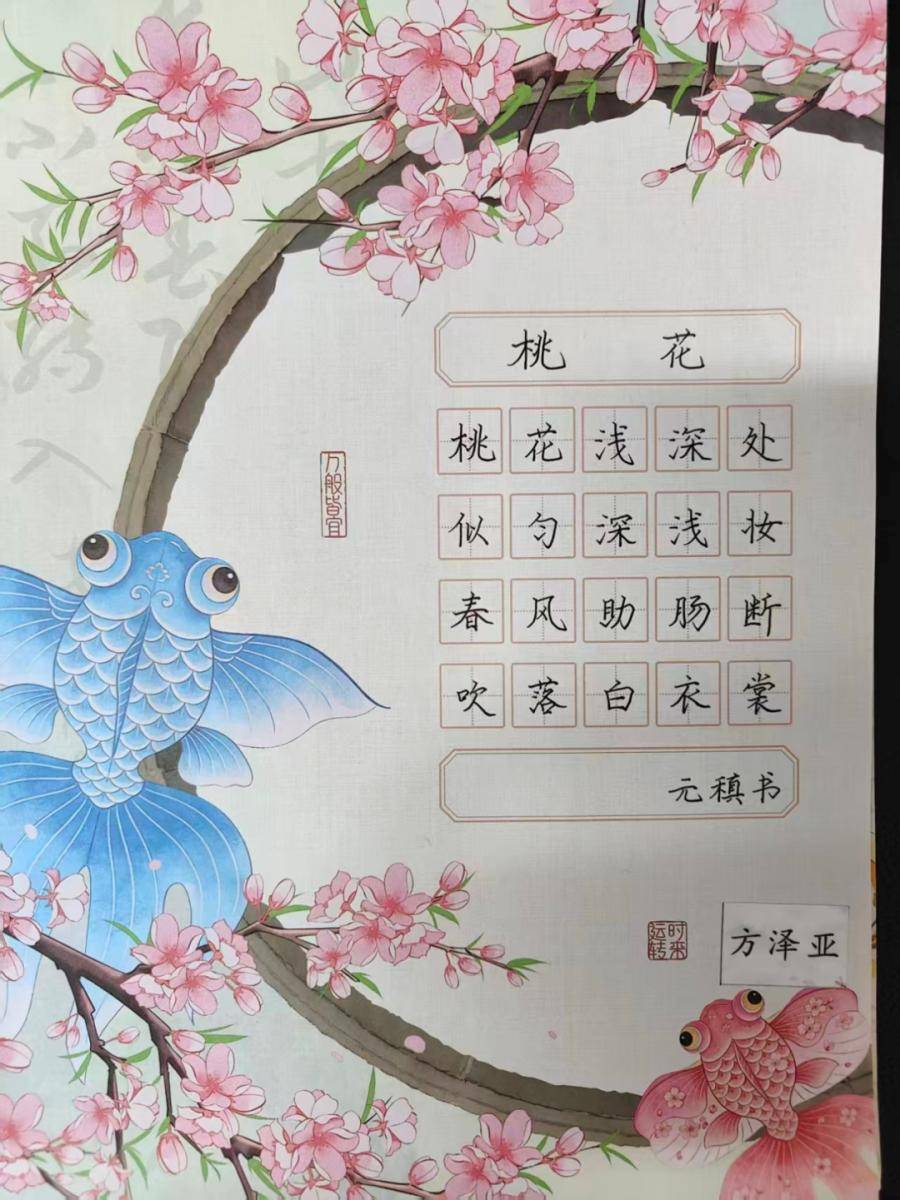 桃 花
桃花浅深处
似匀深浅妆
春风助肠断
吹落白衣裳
元稹书
万般皆宜
时来
运转
方泽亚